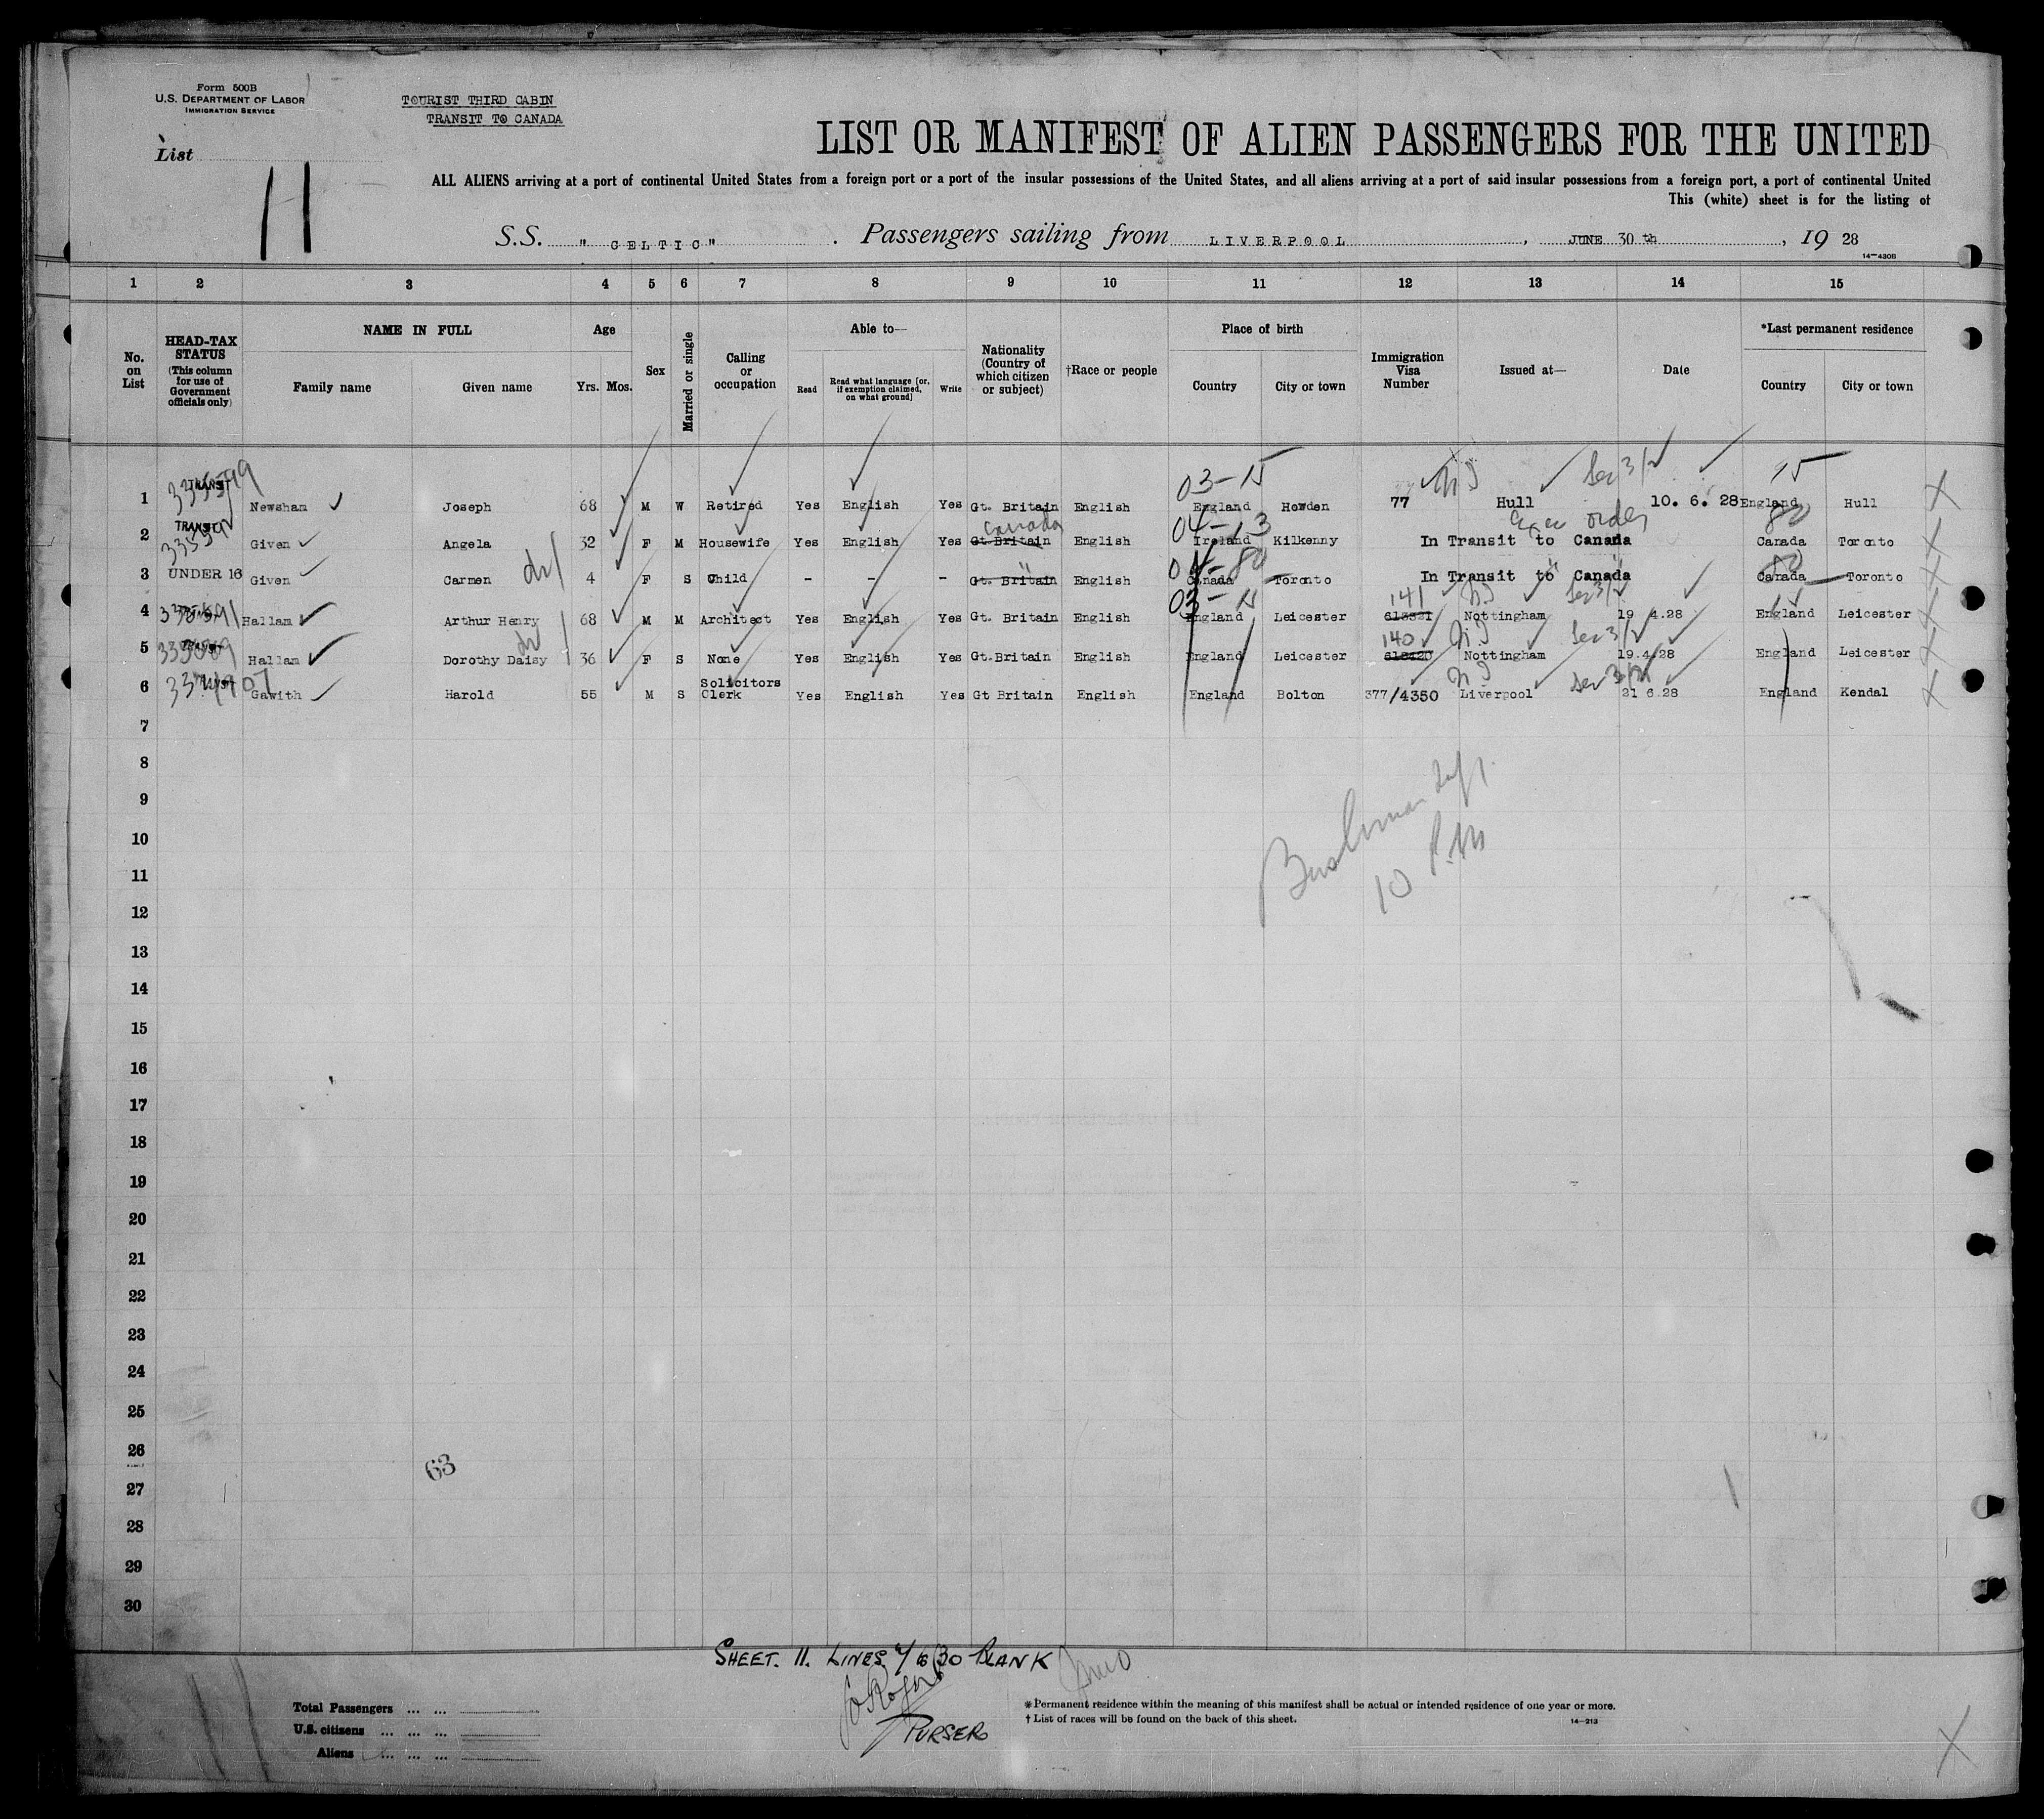 Form 500B
U.S. DEPARTMENT OF LABOR
IMMIGRATION SERVICE
TOURIST THIRD CABIN
TRANSIT TO CANADA
List
11
LIST OR MANIFEST OF ALIEN PASSENGERS FOR THE UNITED
ALL ALIENS arriving at a port of continental United States from a foreign port or a port of the insular possessions of the United States, and all aliens arriving at a port of said insular possessions from a foreign port, a port of continental United
This (white) sheet is for the listing of
S.S. "CELTIC". Passengers sailing from LIVERPOOL, JUNE 30th, 19 28
14—430B
1 2 3 4 5 6 7 8 9 10 11 12 13 14 15
No. on List
HEAD-TAX STATUS (This column for use of Government officials only)
NAME IN FULL Family name Given name
Age Yrs. Mos.
Sex
Married or single
Calling or occupation
Able to— Read Read what language [or, if exemption claimed, on what ground] Write
Nationality (Country of which citizen or subject)
†Race or people
Place of birth Country City or town
Immigration Visa Number
Issued at—
Date
*Last permanent residence Country City or town
03-15 Sec 3/2 15
1 TRANSIT Newsham Joseph 68 M W Retired Yes English Yes Gt. Britain English England Howden 77 Hull 10. 6. 28 England Hull
Canada 04-13 order 80
2 TRANSIT Given Angela 32 F M Housewife Yes English Yes Gt Britain English Ireland Kilkenny In Transit to Canada Canada Toronto
04-80 80
3 UNDER 16 Given Carmen 4 F S Child - - - Gt. Britain English Canada Toronto In Transit to Canada Canada Toronto
03-15 141 Sec 3/2 15
4 Hallam Arthur Henry 68 M M Architect Yes English Yes Gt. Britain English England Leicester Nottingham 19 4.28 England Leicester
140 Sec 3/2
5 Hallam Dorothy Daisy 36 F S None Yes English Yes Gt.Britain English England Leicester 613420 Nottingham 19.4.28 England Leicester
Sec 3/2
6 Gawith Harold 55 M S Solicitors Clerk Yes English Yes Gt Britain English England Bolton 377/4350 Liverpool 21 6.28 England Kendal
7
8
9
10
10 P.M
11
12
13
14
15
16
17
18
19
20
21
22
23
24
25
26
63
27
28
29
30
SHEET. 11. LINES 7 to 30 BLANK
PURSER
Total Passengers ... ...
U.S. citizens ... ... ...
Aliens ... ... ...
*Permanent residence within the meaning of this manifest shall be actual or intended residence of one year or more.
† List of races will be found on the back of this sheet.
14—213